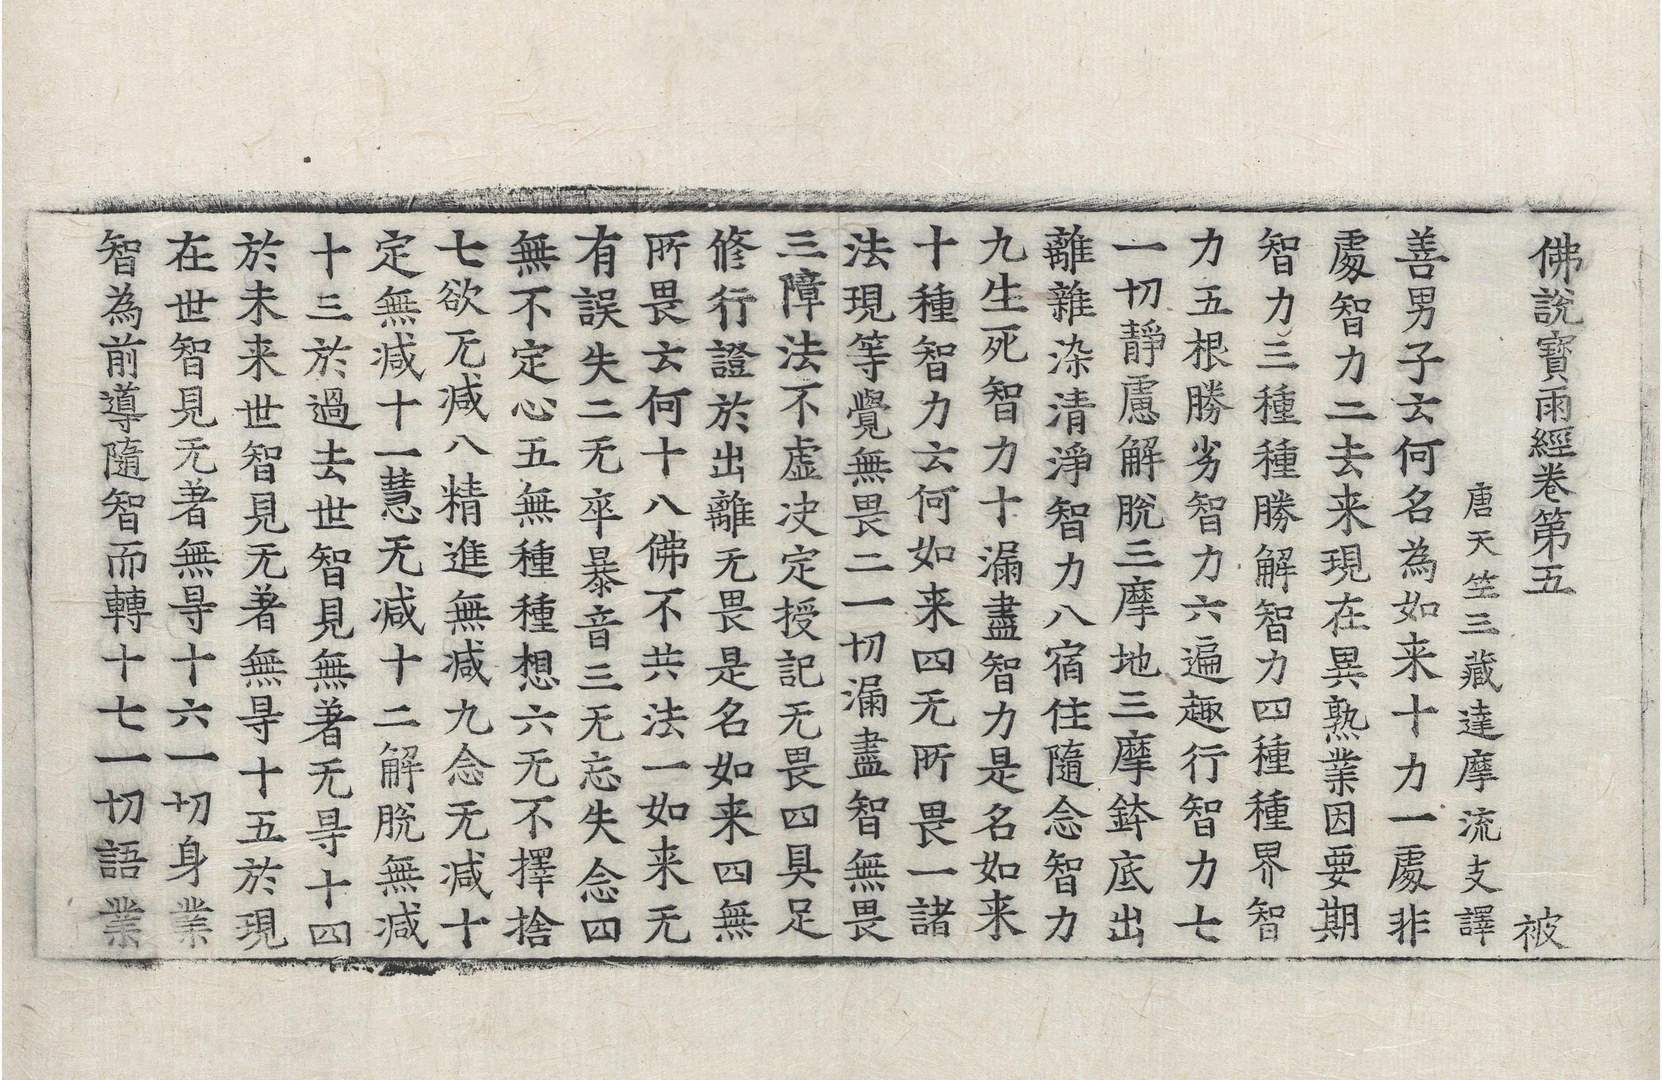 佛說寶雨經卷第五　被
唐天竺三藏達摩流支譯
善男子云何名為如来十力一處非
處智力二去来現在異熟業因要期
智力三種種勝解智力四種種界智
力五根勝劣智力六遍趣行智力七
一切靜慮解脫三摩地三摩鉢底出
離雜染清淨智力八宿住隨念智力
九生死智力十漏盡智力是名如来
十種智力云何如来四无所畏一諸
法現等覺無畏二一切漏盡智無畏
三障法不虛决定授記无畏四具足
修行證於出離无畏是名如来四無
所畏云何十八佛不共法一如来无
有誤失二无卒暴音三无忘失念四
無不定心五無種種想六无不擇捨
七欲无减八精進無减九念无减十
定無减十一慧无减十二解脫無减
十三於過去世智見無著无㝵十四
於未来世智見无著無㝵十五於現
在世智見无著無㝵十六一切身業
智為前導隨智而轉十七一切語業